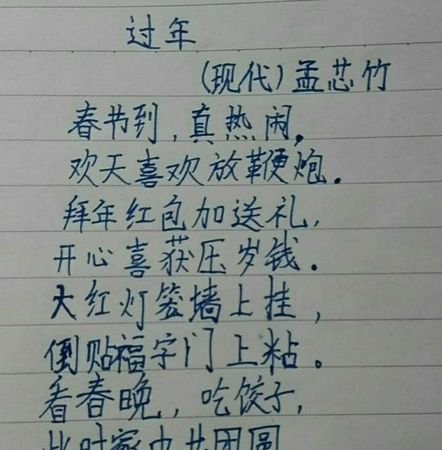 过年
(现代)孟芯竹
春书到,真热闹。
欢天喜欢放鞭炮。
拜年红包加送礼,
开心喜获压岁钱。
大红灯笼墙上挂,
倒贴福字门上粘。
看春晚,吃饺子,
此时家中共团圆